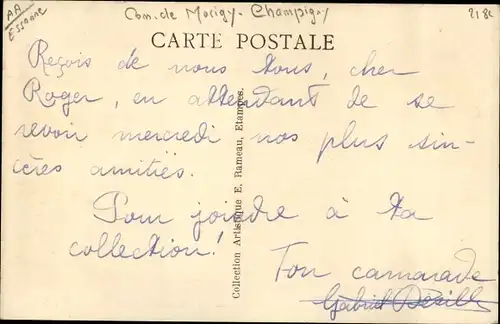 AA
Essonne
Com. de Morigy-Champigny
2182
CARTE POSTALE
Reçois de nous tous, cher
Roger, en attendant de se
revoir mercredi nos plus sin-
cères amitiés.
Pour joindre à ta
collection!
Ton camarade
Gabriel
Collection Artistique E. Rameau, Etampes.